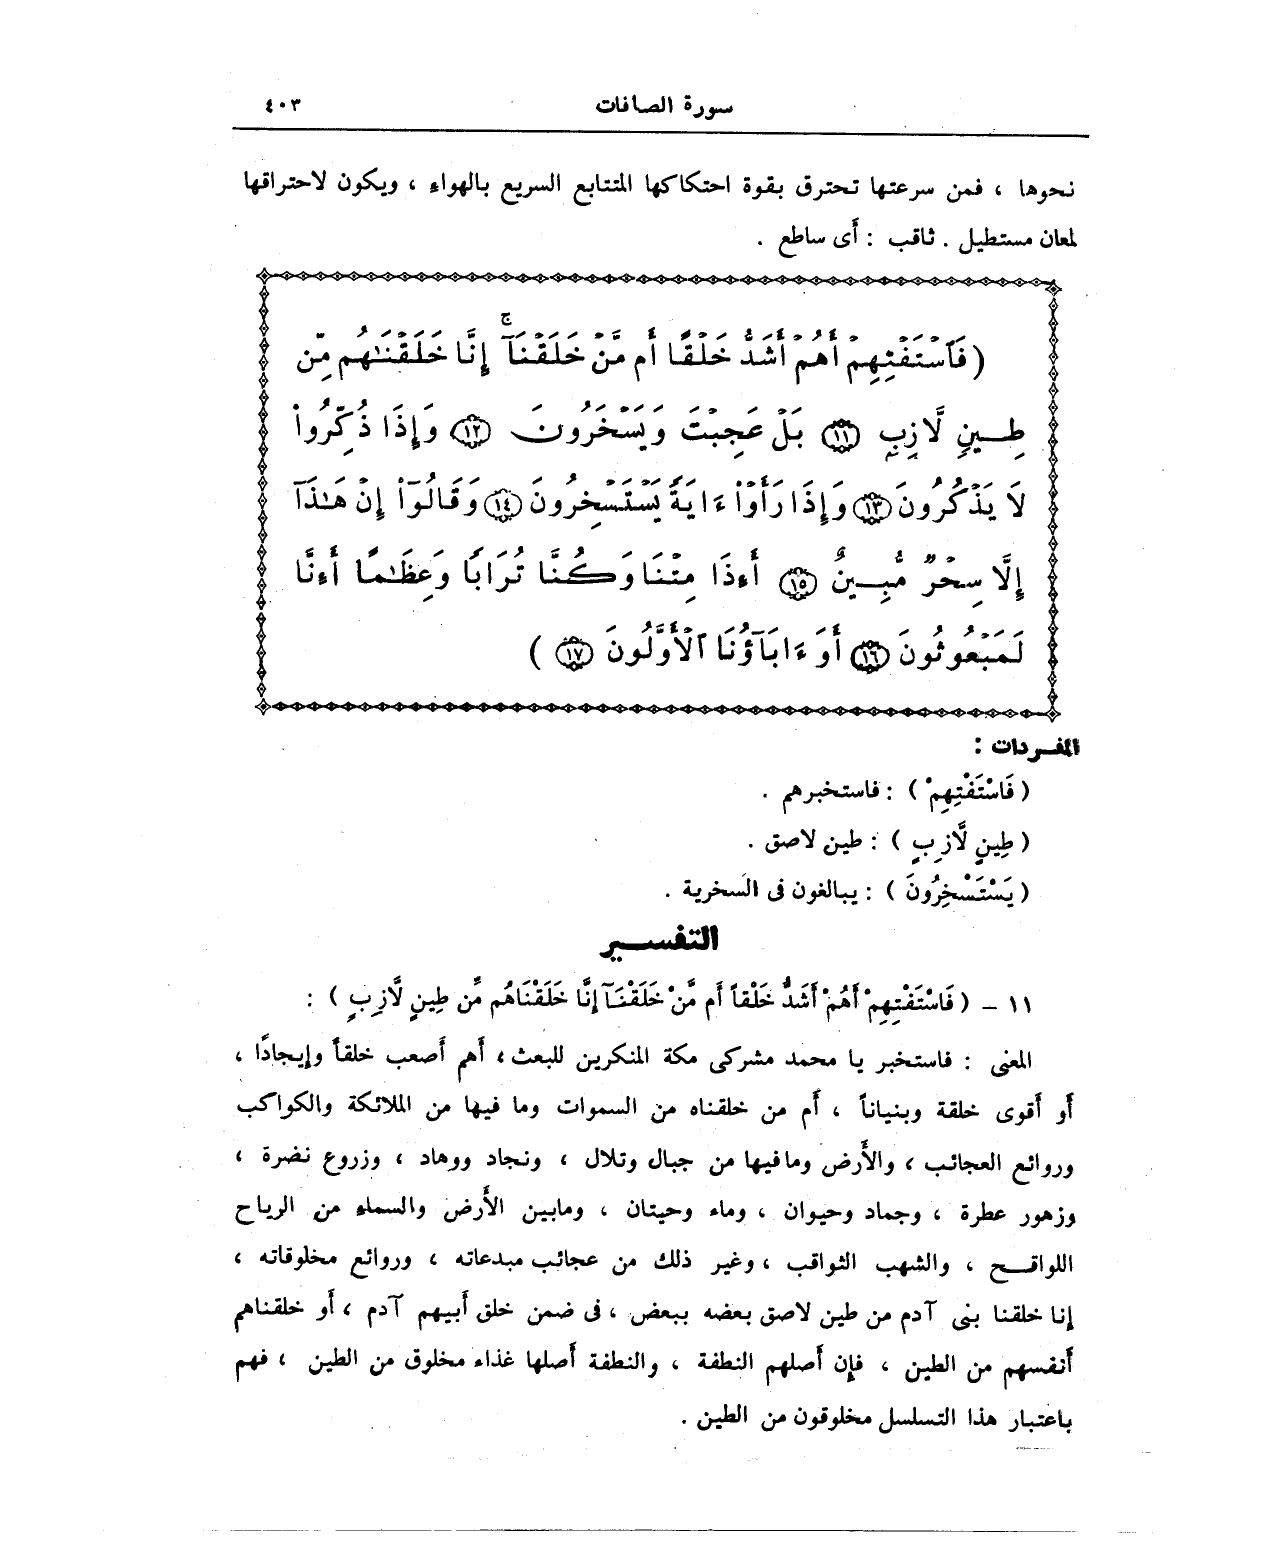 سورة الصافات ٤٠٣
نحوها ، فمن سرعتها تحترق بقوة احتكاكها المتتابع السريع بالهواء ، ويكون لاحتراقها
لمعان مستطيل . ثاقب : أى ساطع .
( فَٱسۡتَفۡتِهِمۡ أَهُمۡ أَشَدُّ خَلۡقًا أَم مَّنۡ خَلَقۡنَآۚ إِنَّا خَلَقۡنَٰهُم مِّن
طِينٖ لَّازِبِۭ ١١ بَلۡ عَجِبۡتَ وَيَسۡخَرُونَ ١٢ وَإِذَا ذُكِّرُواْ
لَا يَذۡكُرُونَ ١٣ وَإِذَا رَأَوۡاْ ءَايَةٗ يَسۡتَسۡخِرُونَ ١٤ وَقَالُوٓاْ إِنۡ هَٰذَآ
إِلَّا سِحۡرٞ مُّبِينٌ ١٥ أَءِذَا مِتۡنَا وَكُنَّا تُرَابٗا وَعِظَٰمًا أَءِنَّا
لَمَبۡعُوثُونَ ١٦ أَوَ ءَابَآؤُنَا ٱلۡأَوَّلُونَ ١٧ )
المفردات :
( فَاسْتَفْتِهِمْ ) : فاستخبرهم .
( طِينٍ لَّازِبٍ ) : طين لاصق .
( يَسْتَسْخِرُونَ ) : يبالغون فى السخرية .
التفسير
١١ – ( فَاسْتَفْتِهِمْ أَهُمْ أَشَدُّ خَلْقاً أَم مَّنْ خَلَقْنَآ إِنَّا خَلَقْنَاهُم مِّن طِينٍ لَّازِبٍ ) :
المعنى : فاستخبر يا محمد مشركى مكة المنكرين للبعث ، أهم أصعب خلقاً وإيجادًا ،
أو أقوى خلقة وبنياناً ، أم من خلقناه من السموات وما فيها من الملائكة والكواكب
وروائع العجائب ، والأرض ومافيها من جبال وتلال ، ونجاد ووهاد ، وزروع نضرة ،
وزهور عطرة ، وجماد وحيوان ، وماء وحيتان ، ومابين الأرض والسماء من الرياح
اللواقح ، والشهب الثواقب ، وغير ذلك من عجائب مبدعاته ، وروائع مخلوقاته ،
إنا خلقنا بنى آدم من طين لاصق بعضه ببعض ، فى ضمن خلق أبيهم آدم ، أو خلقناهم
أنفسهم من الطين ، فإن أصلهم النطفة ، والنطفة أصلها غذاء مخلوق من الطين ، فهم
باعتبار هذا التسلسل مخلوقون من الطين .